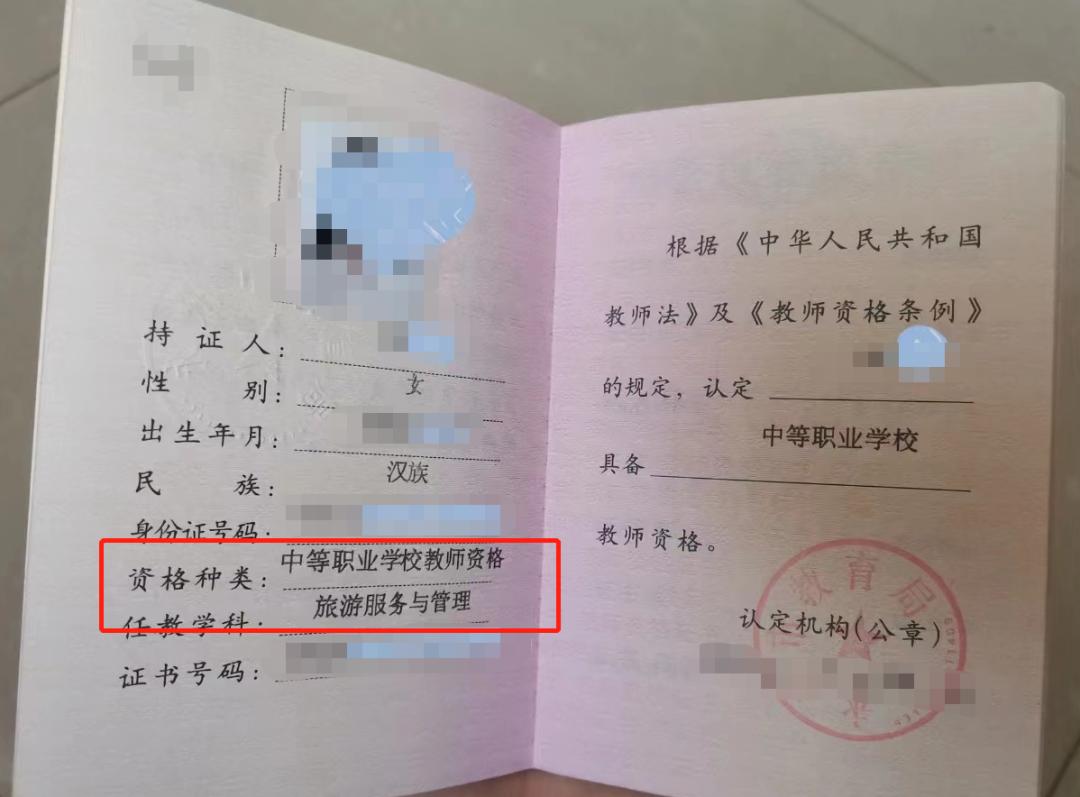 持证人：
性别：女
出生年月：
民族：汉族
身份证号码：
资格种类：中等职业学校教师资格
任教学科：旅游服务与管理
证书号码：
根据《中华人民共和国
教师法》及《教师资格条例》
的规定，认定
具备中等职业学校
教师资格。
认定机构(公章)
教育局